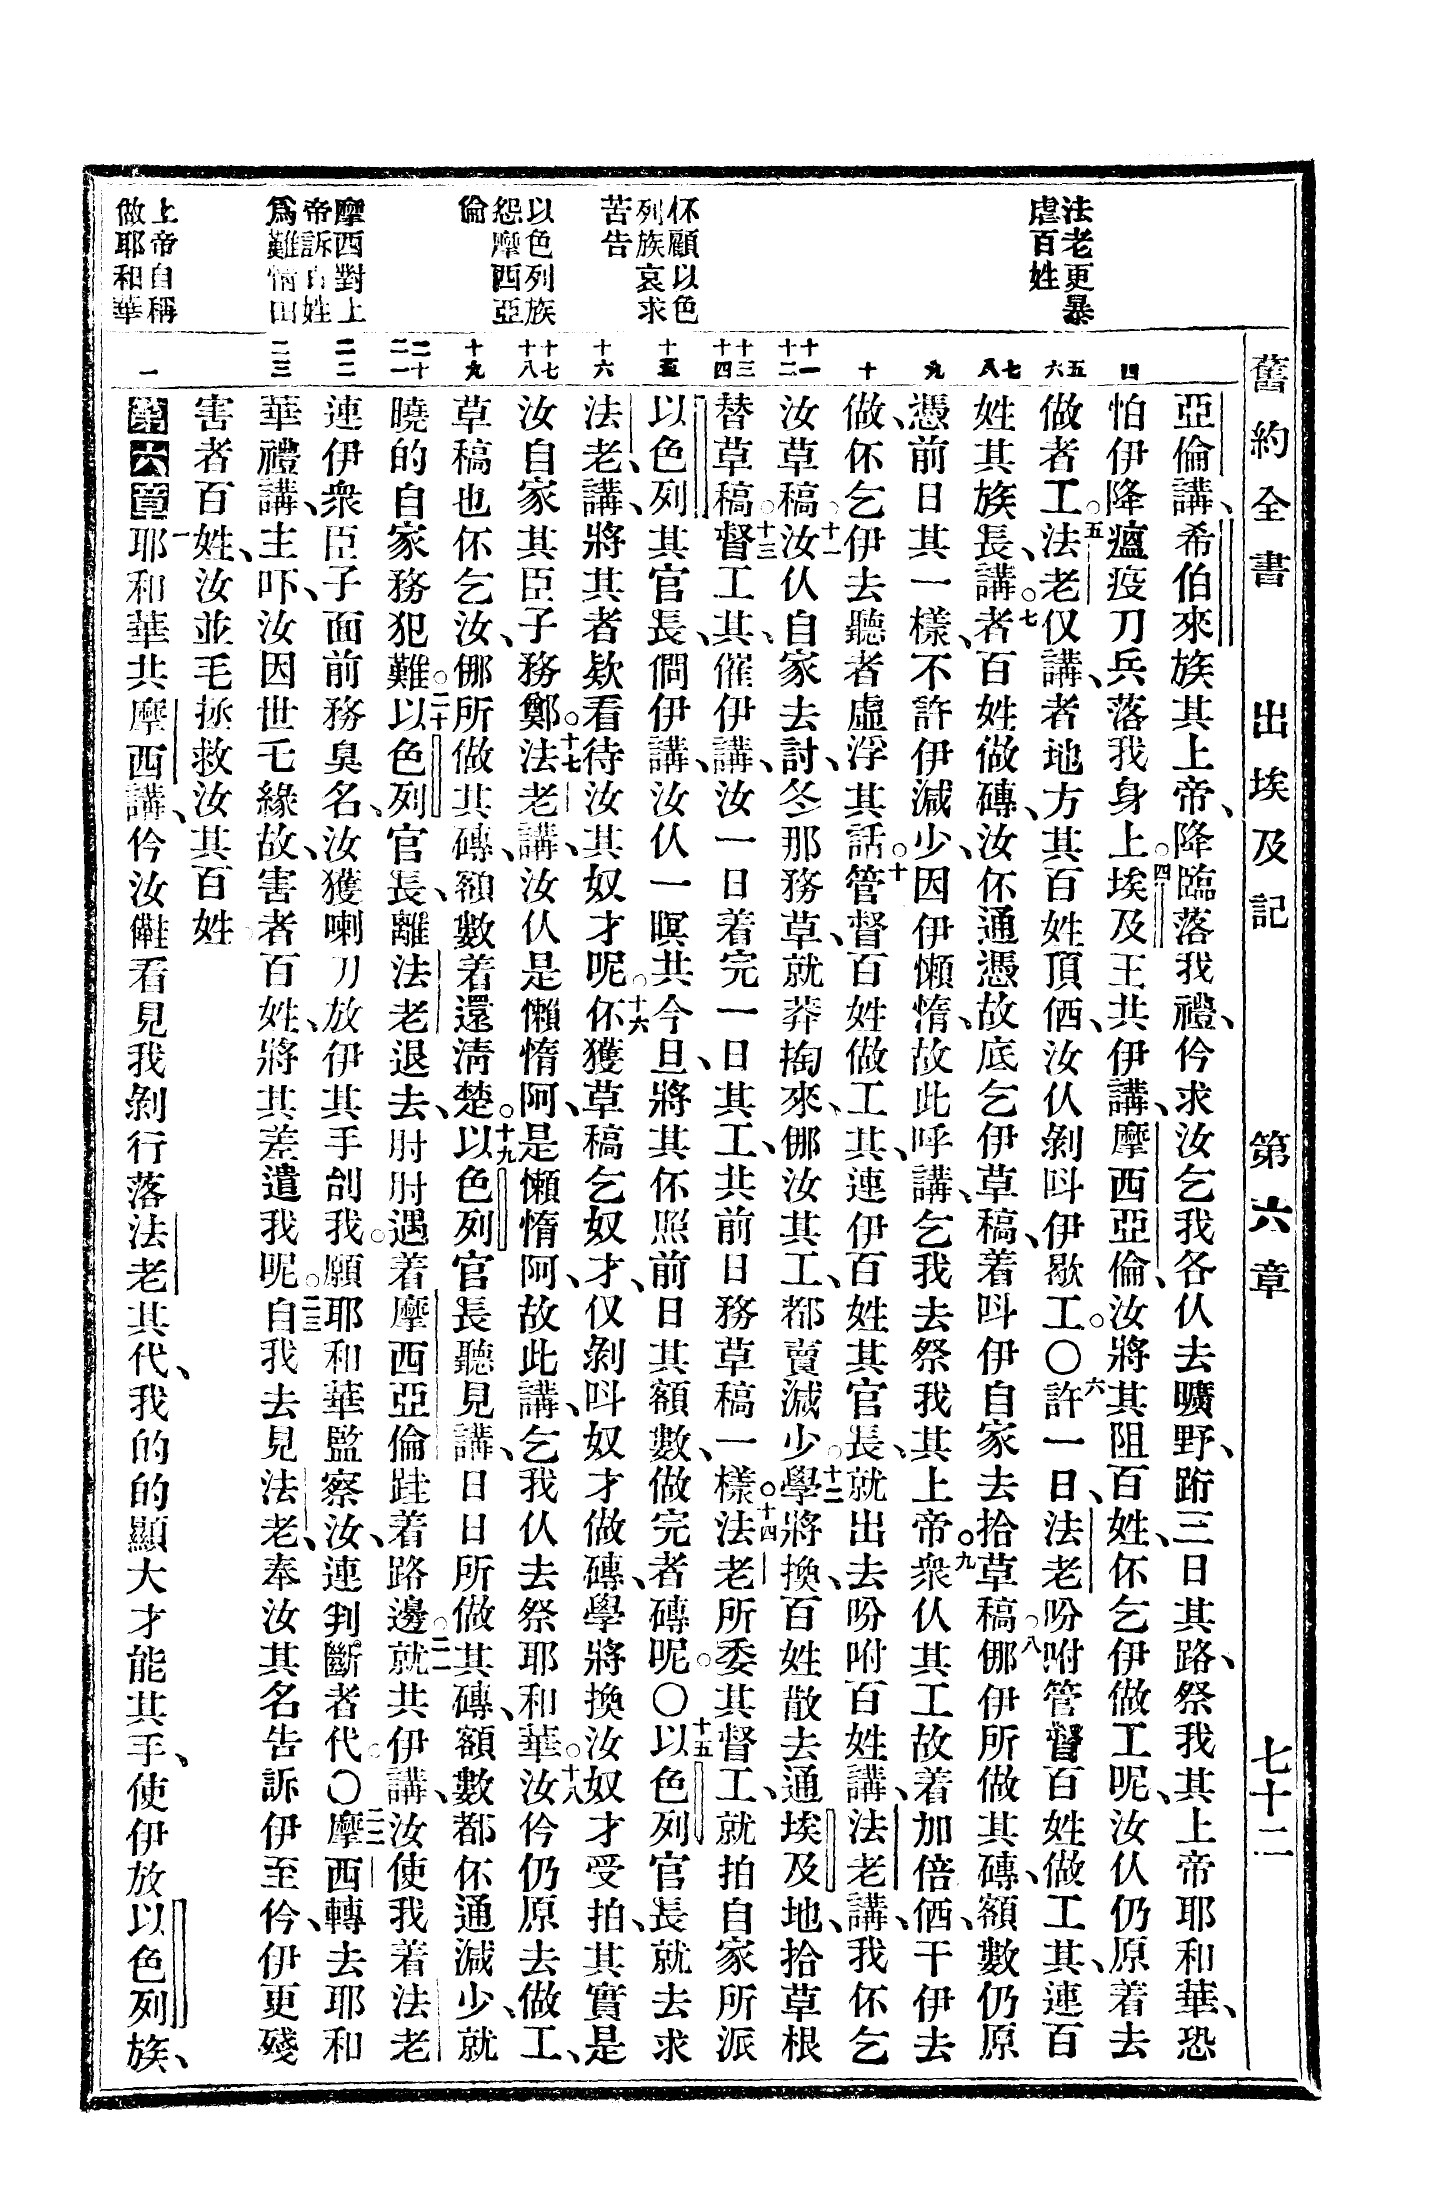 舊約全書 出埃及記 第六章 七十二
法老更暴
虐百姓
伓顧以色
列族哀求
苦告
以色列族
怨摩西亞
倫
摩西對上
帝訴百姓
爲難情由
上帝自稱
做耶和華
亞倫講、希伯來族其上帝、降臨落我禮、仱求汝乞我各仈去曠野、跨三日其路、祭我其上帝耶和華、恐
怕伊降瘟疫刀兵落我身上。四埃及王共伊講、摩西亞倫、汝將其阻百姓、伓乞伊做工呢、汝仈仍原着去
做者工。五法老仅講、者地方其百姓頂𠶧、汝仈剝呌伊歇工。〇六許一日、法老吩咐管督百姓做工其、連百
姓其族長、講。七者百姓做磚、汝伓通憑故底乞伊草稿、着呌伊自家去拾草稿。八㑚伊所做其磚、額數仍原
憑前日其一樣、不許伊減少、因伊懶惰、故此呼講、乞我去祭我其上帝。九衆仈其工故着加倍𠶧、干伊去
做、伓乞伊去聽者虛浮其話。十管督百姓做工其、連伊百姓其官長、就出去吩咐百姓講、法老講、我伓乞
汝草稿。十一汝仈自家去討、冬那務草、就莽掏來、㑚汝其工、都賣減少。十二學將換、百姓散去通埃及地、拾草根
替草稿。十三督工其、催伊講、汝一日着完一日其工、共前日務草稿一樣。十四法老所委其督工、就拍自家所派
以色列其官長、問伊講、汝仈一暝共今旦、將其伓照前日其額數、做完者磚呢。〇十五以色列官長就去求
法老、講、將其者欵看待汝其奴才呢。十六伓獲草稿乞奴才、仅剝呌奴才做磚、學將換汝奴才受拍、其實是
汝自家其臣子務鄭。十七法老講、汝仈是懶惰阿、是懶惰阿、故此講、乞我仈去祭耶和華。十八汝仱仍原去做工、
草稿也伓乞汝、㑚所做其磚、額數着還淸楚。十九以色列官長聽見講、日日所做其磚、額數都伓通減少、就
曉的自家務犯難。二十以色列官長、離法老退去、肘肘遇着摩西亞倫跬着路邊。二一就共伊講、汝使我着法老
連伊衆臣子、面前務臭名、汝獲喇刀放伊其手刣我。願耶和華監察汝、連判斷者代。〇二二摩西轉去耶和
華禮講、主吓、汝因世乇緣故、害者百姓、將其差遣我呢。二三自我去見法老、奉汝其名告訴伊至仱、伊更殘
害者百姓、汝並毛拯救汝其百姓。
第六章一耶和華共摩西講、仱汝㒓看見我剝行落法老其代、我的的顯大才能其手、使伊放以色列族、